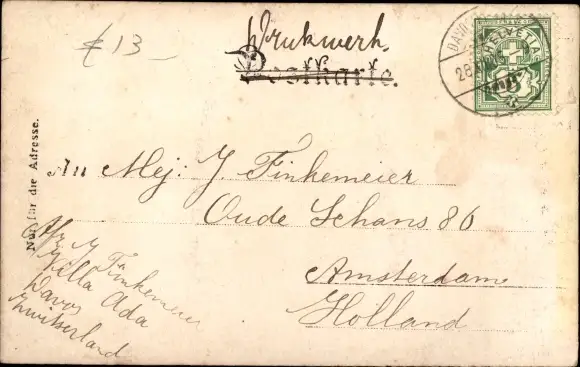 € 13
Drukwerk.
Postkarte.
DAVOS
28
HELVETIA
Nur für die Adresse.
An Mej: J. Finkemeier
Oude Schans 86
Amsterdam
Holland
Afz J Finkemeier
Villa Ada
Davos
Zwitserland